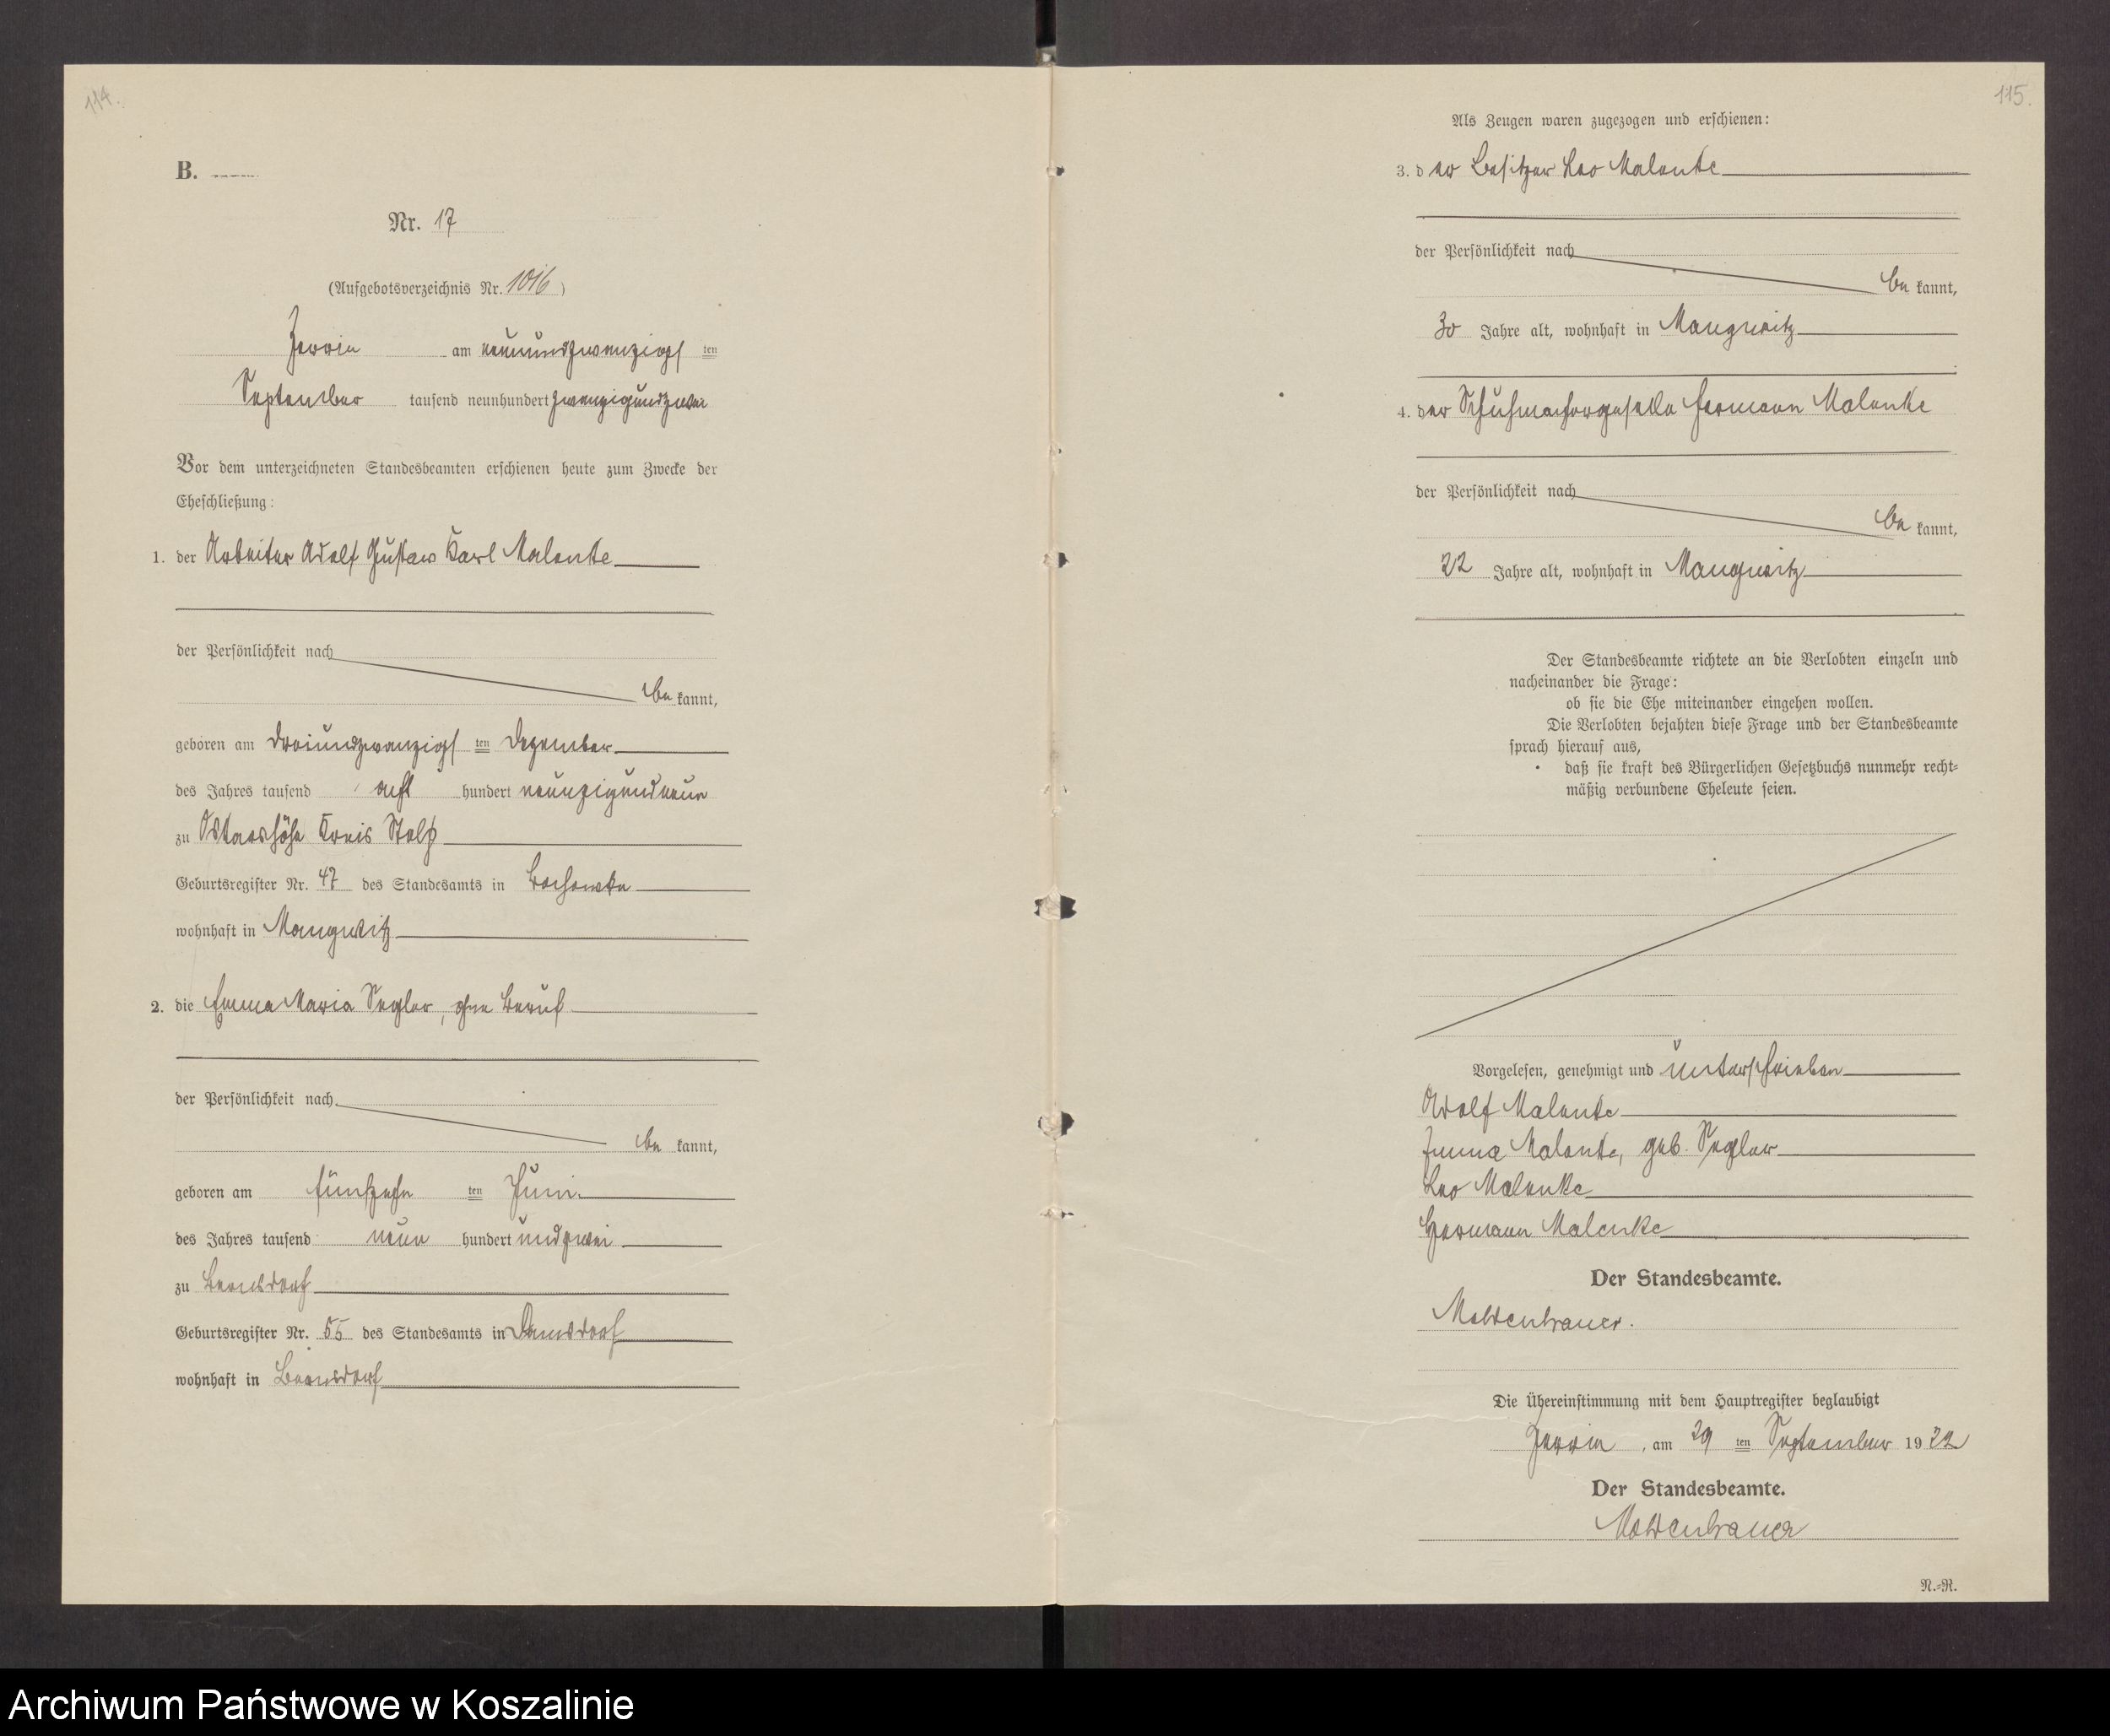 114.
B.
Nr. 17
(Aufgebotsverzeichnis Nr. 1016)
Jassen am neunundzwanzigsten
September tausend neunhundert zwanzigundzwei
Vor dem unterzeichneten Standesbeamten erschienen heute zum Zwecke der
Eheschließung:
1. der Arbeiter Adolf Gustav Karl Malenke
der Persönlichkeit nach
be kannt,
geboren am dreiundzwanzigsten Dezember
des Jahres tausend acht hundert neunzigundneun
zu Oskarshöhe Kreis Stolp
Geburtsregister Nr. 47 des Standesamts in Bochowke
wohnhaft in Mangwitz
2. die Emma Maria Segler, ohne Beruf
der Persönlichkeit nach
be kannt,
geboren am fünfzehn ten Juni
des Jahres tausend neun hundert undzwei
zu Bernsdorf
Geburtsregister Nr. 55 des Standesamts in Damsdorf
wohnhaft in Bernsdorf
115.
Als Zeugen waren zugezogen und erschienen:
3. der Besitzer Leo Malenke
der Persönlichkeit nach
be kannt,
30 Jahre alt, wohnhaft in Mangwitz
4. der Schuhmachergeselle Hermann Malenke
der Persönlichkeit nach
be kannt,
22 Jahre alt, wohnhaft in Mangwitz
Der Standesbeamte richtete an die Verlobten einzeln und
nacheinander die Frage:
ob sie die Ehe miteinander eingehen wollen.
Die Verlobten bejahten diese Frage und der Standesbeamte
sprach hierauf aus,
daß sie kraft des Bürgerlichen Gesetzbuchs nunmehr recht-
mäßig verbundene Eheleute seien.
Vorgelesen, genehmigt und unterschrieben
Adolf Malenke
Emma Malenke, geb. Segler
Leo Malenke
Hermann Malenke
Der Standesbeamte.
Moldenhauer.
Die Übereinstimmung mit dem Hauptregister beglaubigt
am 29 ten September 1922
Der Standesbeamte.
Moldenhauer
N.-R.
Archiwum Państwowe w Koszalinie